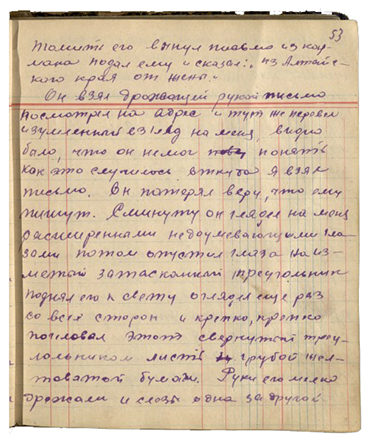 53
томить его вынул письмо из кар-
мана подал ему и сказал: „из Алтайс-
кого края от жены."
Он взял дрожащей рукой письмо
посмотрел на адрес и тут же перевел
изумленный взгляд на меня, видно
было, что он не мог понять
как это случилось, откуда я взял
письмо. Он потерял веру, что ему
пишут. С минуту он глядел на меня
расширенными недоумевающими гла-
зами потом опустил глаза на из-
мятый затасканный треугольник
поднял его к свету оглядел еще раз
со всех сторон и крепко, крепко
поцеловал этот свернутый треу-
гольником листъ грубой жел-
товатой бумаги. Руки его мелко
дрожали и слезы одна за другой